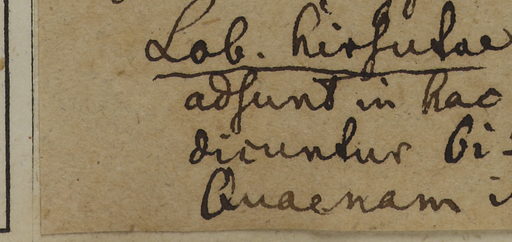 Lob. hirsutae
adsunt in hac
dicuntur bi-
Quaenam i